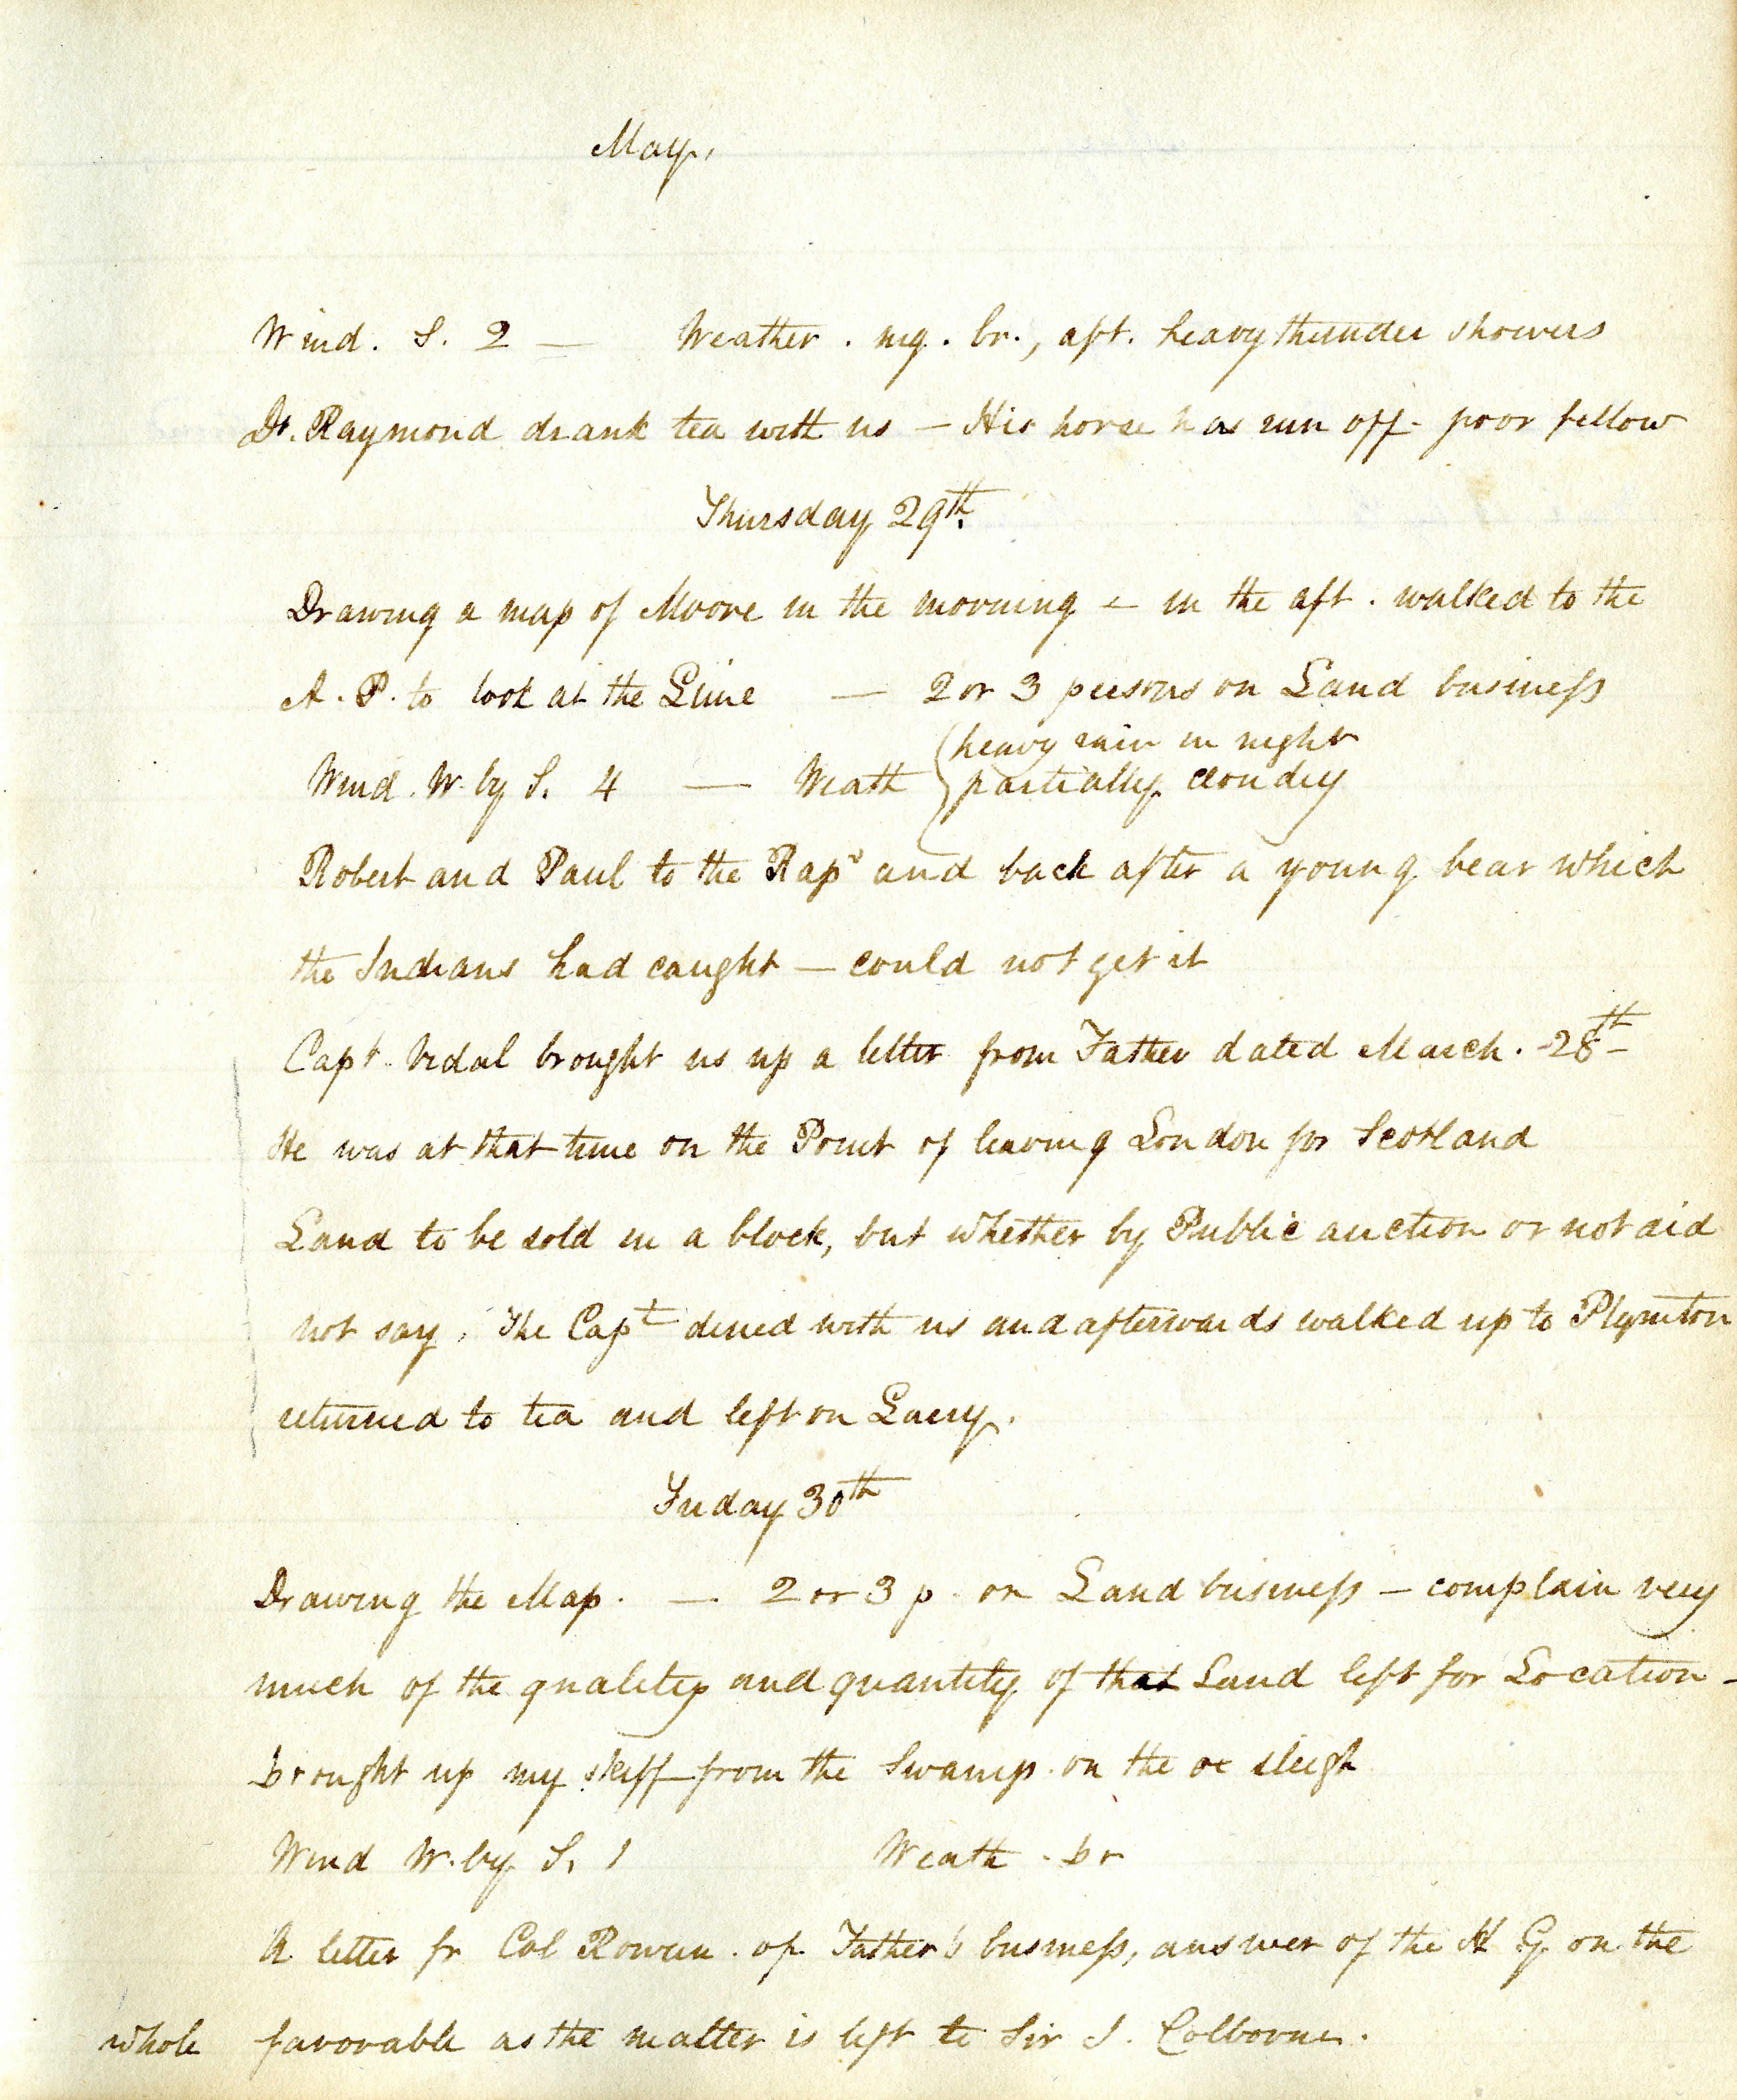 May,
Wind. S. 2 — Weather . mg. br., aft. heavy thunder showers
Dr. Raymond drank tea with us — His horse has run off - poor fellow
Thursday 29th.
Drawing a map of Moore in the morning — in the aft. walked to the
A. P. to look at the Line — 2 or 3 persons on Land business
heavy rain in night
Wind. W. by S. 4 — Weath partially cloudy
Robert and Paul to the Rapd and back after a young bear which
the Indians had caught — could not get it
Capt. Vidal brought us up a letter from Father dated March. 28th
He was at that time on the Point of leaving London for Scotland
Land to be sold in a block, but whether by Public auction or not did
not say, The Capt dined with us and afterwards walked up to Plymton
returned to tea and left on Lacry.
Friday 30th
Drawing the Map. — 2 or 3 p. on Land business — complain very
much of the quality and quantity of that Land left for Location -
brought up my skiff from the Swamp on the ox sleigh
Wind W. by S. 1 Weath . br
A letter fr Col Rowan . of Father's business, answer of the H G. on the
whole favorable as the matter is left to Sir J. Colborne.